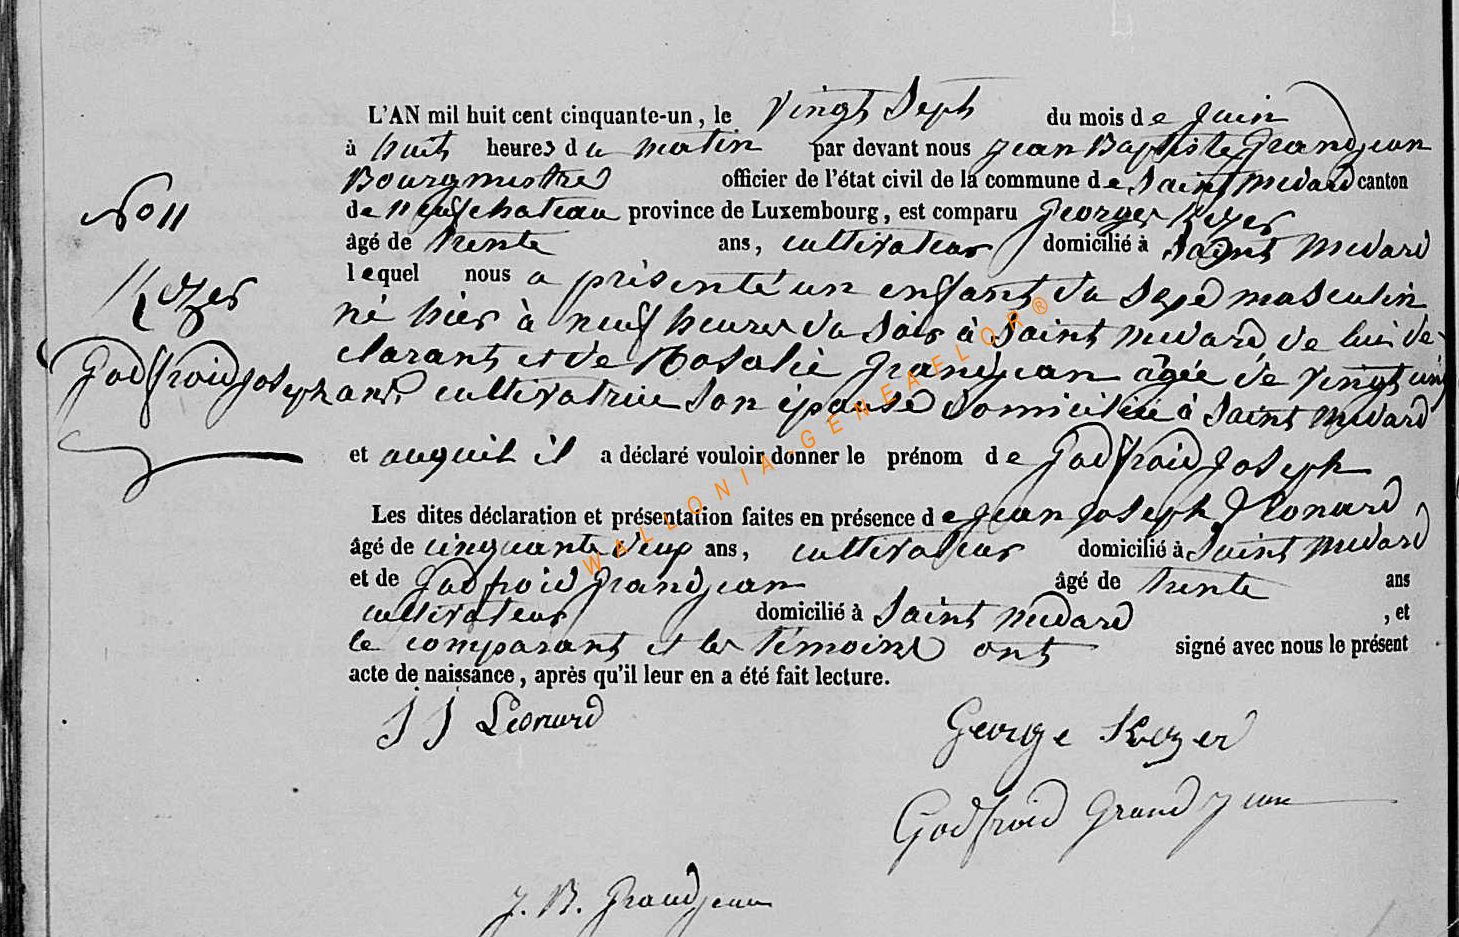 L'AN mil huit cent cinquante-un, le vingt sept du mois de juin
à huit heures du matin par devant nous jean Baptiste Grandjean
Bourgmestre officier de l'état civil de la commune de Saint Medard canton
de neufchateau province de Luxembourg, est comparu Georges Kezer
âgé de trente ans, cultivateur domicilié à Saint Medard
lequel nous a présenté un enfant du Sexe masculin
né hier à neuf heures du Soir à Saint Medard de lui de-
clarant et de Rosalie Grandjean âgée de vingt cinq
ans, cultivatrice Son épouse domiciliée à Saint Medard
et auquel il a déclaré vouloir donner le prénom de Godfroid joseph
Les dites déclaration et présentation faites en présence de jean joseph Léonard,
âgé de cinquante deux ans, cultivateur domicilié à Saint Medard
et de Godfroid Grandjean âgé de trente ans
cultivateur domicilié à Saint Medard, et
le comparant et les témoins ont signé avec nous le présent
acte de naissance, après qu'il leur en a été fait lecture.
No 11
Kezer
Godfroid joseph
J J Leonard
George Kezer
Godfroid Grandjean
J. B. Grandjean
WALLONIA-GENEAFELOR®